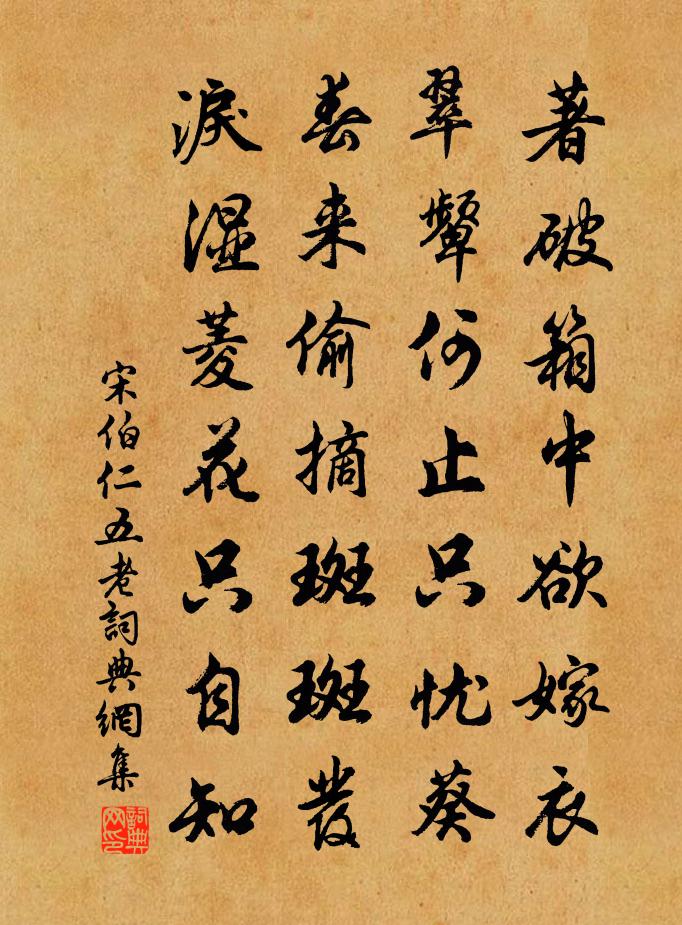 著破箱中欲嫁衣
翠顰何止只忧葵
春来偷摘斑斑發
淚湿菱花只自知
宋伯仁五老詞典網集
詞典网印